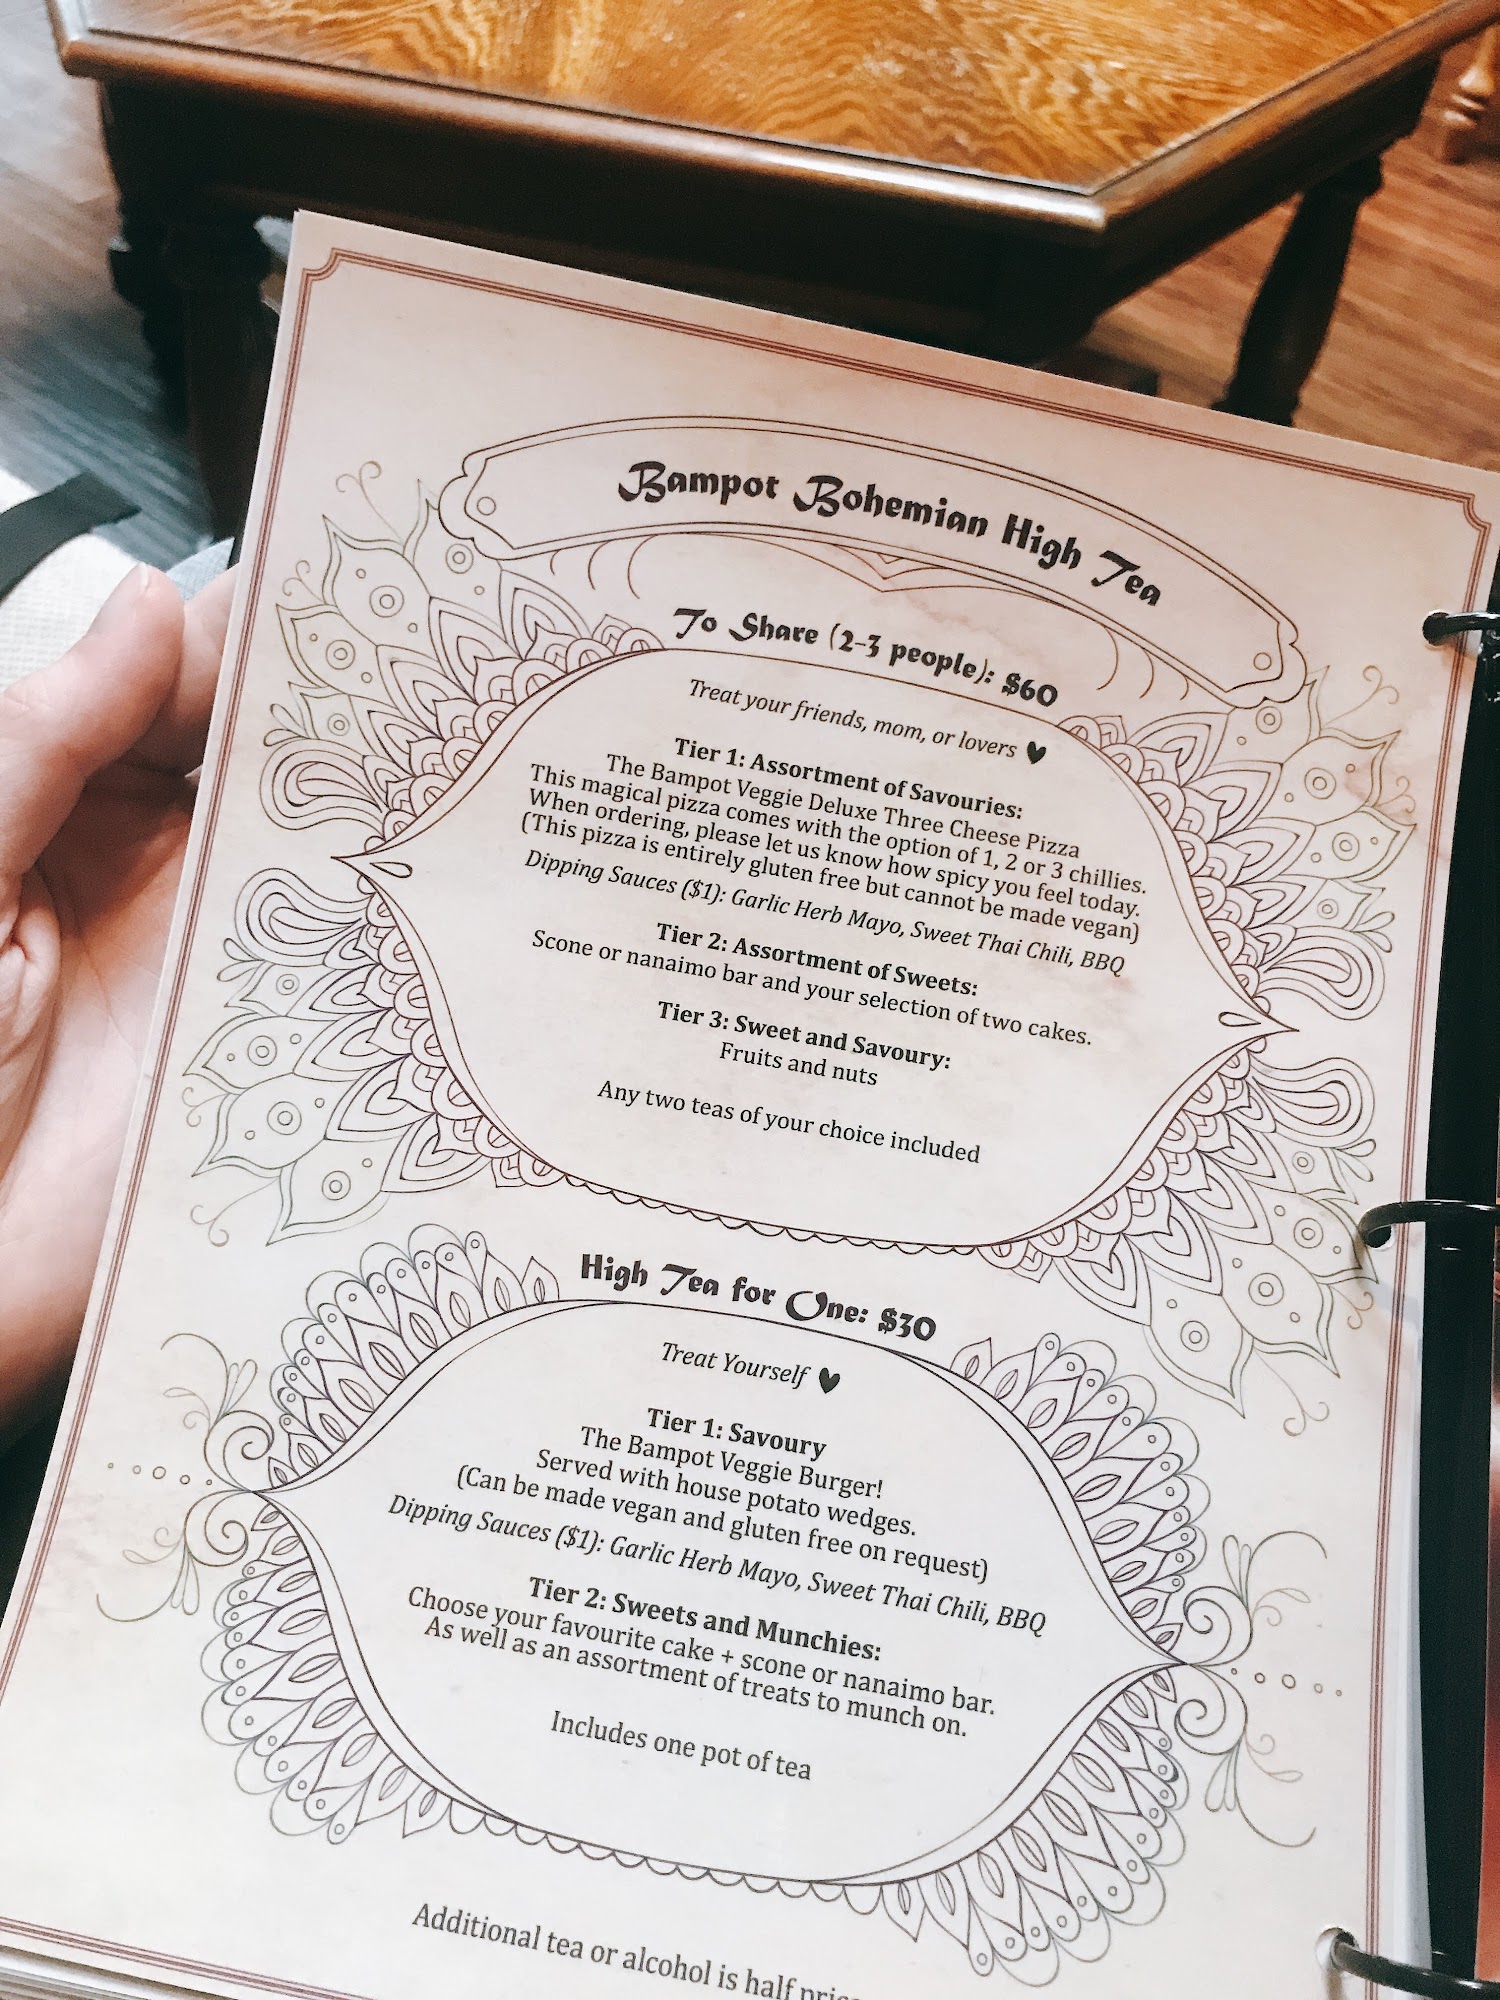 Bampot Bohemian High Tea
To Share (2-3 people): $60
Treat your friends, mom, or lovers ♥
Tier 1: Assortment of Savouries:
The Bampot Veggie Deluxe Three Cheese Pizza
This magical pizza comes with the option of 1, 2 or 3 chillies.
When ordering, please let us know how spicy you feel today.
(This pizza is entirely gluten free but cannot be made vegan)
Dipping Sauces ($1): Garlic Herb Mayo, Sweet Thai Chili, BBQ
Tier 2: Assortment of Sweets:
Scone or nanaimo bar and your selection of two cakes.
Tier 3: Sweet and Savoury:
Fruits and nuts
Any two teas of your choice included
High Tea for One: $30
Treat Yourself ♥
Tier 1: Savoury
The Bampot Veggie Burger!
Served with house potato wedges.
(Can be made vegan and gluten free on request)
Dipping Sauces ($1): Garlic Herb Mayo, Sweet Thai Chili, BBQ
Tier 2: Sweets and Munchies:
Choose your favourite cake + scone or nanaimo bar.
As well as an assortment of treats to munch on.
Includes one pot of tea
Additional tea or alcohol is half